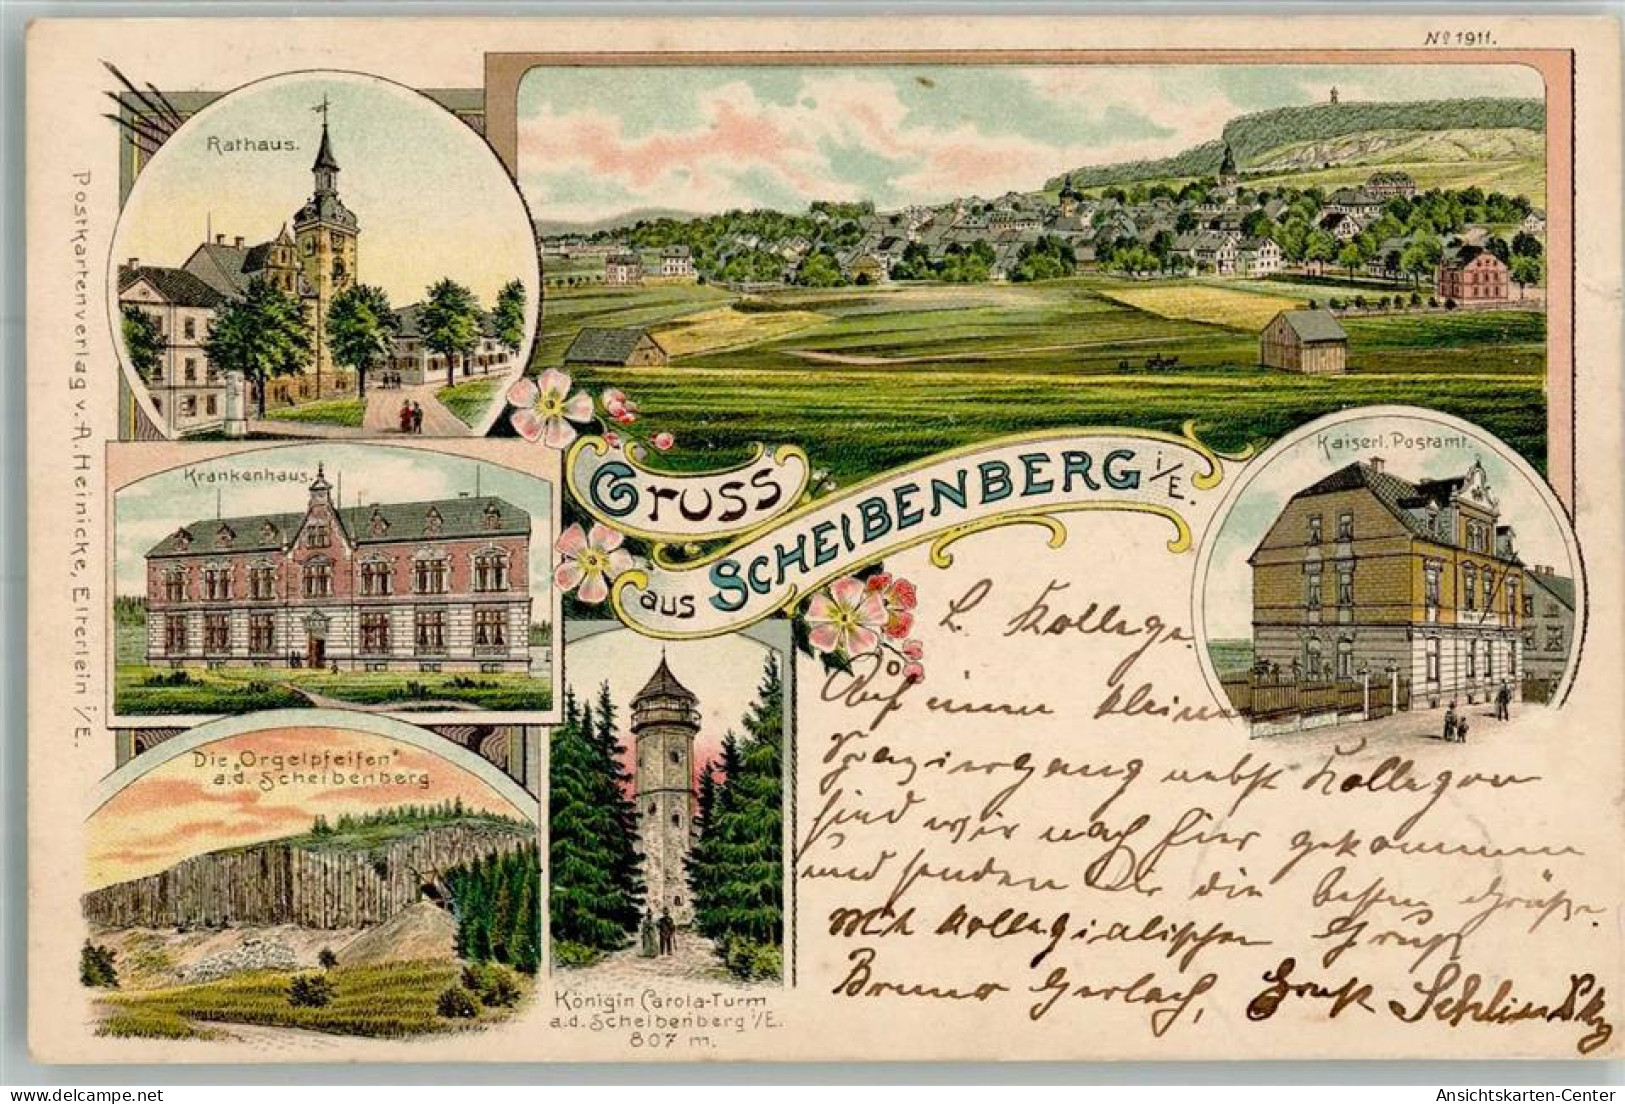 No 1911.
Rathaus.
Postkartenverlag v. A. Heinicke, Elterlein i/E.
Kaiserl. Postamt.
Krankenhaus.
Gruss
aus Scheibenberg i/E.
Die „Orgelpfeifen"
a.d. Scheibenberg
Königin Carola-Turm
a.d. Scheibenberg i/E.
807 m.
L. Kollege.
Auf einem kleinen
Spaziergang nebst Kollegen
sind wir nach hier gekommen
und senden Dir die besten Grüße.
Mit kollegialischen Gruß
Bruno Gerlach, Gruß
Ansichtskarten-Center